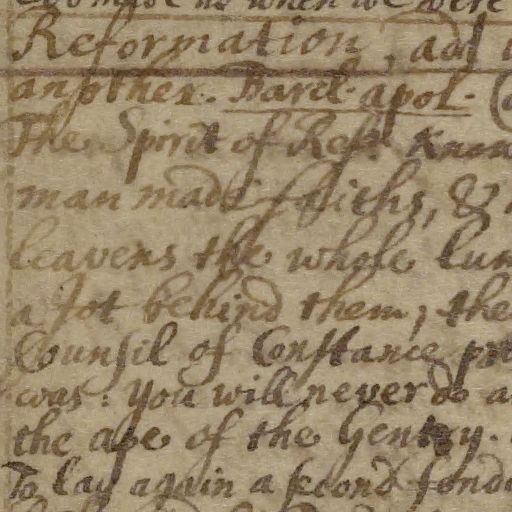 when we were
Reformation, add
another. Barcl. apol.
The Spirit of Ref:
man made faiths, &
leavens the whole lum
a Jot behind them; the
Counsil of Constance
was: you will never do a
the age of the Gentry.
To lay again a second fond